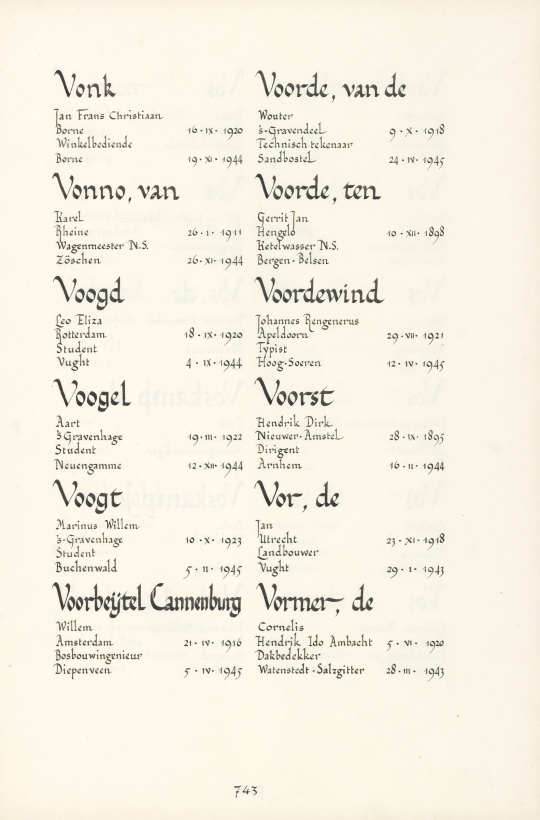 Vonk
Jan Frans Christiaan
Borne 16·IX·1920
Winkelbediende
Borne 19·XI·1944
Vonno, van
Karel
Rheine 26·I·1911
Wagenmeester N.S.
Zöschen 26·XI·1944
Voogd
Leo Eliza
Rotterdam 18·IX·1920
Student
Vught 4·IX·1944
Voogel
Aart
's Gravenhage 19·III·1922
Student
Neuengamme 12·XII·1944
Voogt
Marinus Willem
's-Gravenhage 10·X·1923
Student
Buchenwald 5·II·1945
Voorbeijtel Cannenburg
Willem
Amsterdam 21·IV·1916
Bosbouwingenieur
Diepenveen 5·IV·1945
Voorde, van de
Wouter
's-Gravendeel 9·X·1918
Technisch tekenaar
Sandbostel 24·IV·1945
Voorde, ten
Gerrit Jan
Hengelo 10·XII·1898
Ketelwasser N.S.
Bergen-Belsen
Voordewind
Johannes Rengenerus
Apeldoorn 29·VII·1921
Typist
Hoog-Soeren 12·IV·1945
Voorst
Hendrik Dirk
Nieuwer-Amstel 28·IX·1895
Dirigent
Arnhem 16·II·1944
Vor, de
Jan
Utrecht 23·XI·1918
Landbouwer
Vught 29·I·1943
Vormer, de
Cornelis
Hendrik Ido Ambacht 5·VI·1920
Dakbedekker
Watenstedt-Salzgitter 28·III·1943
743